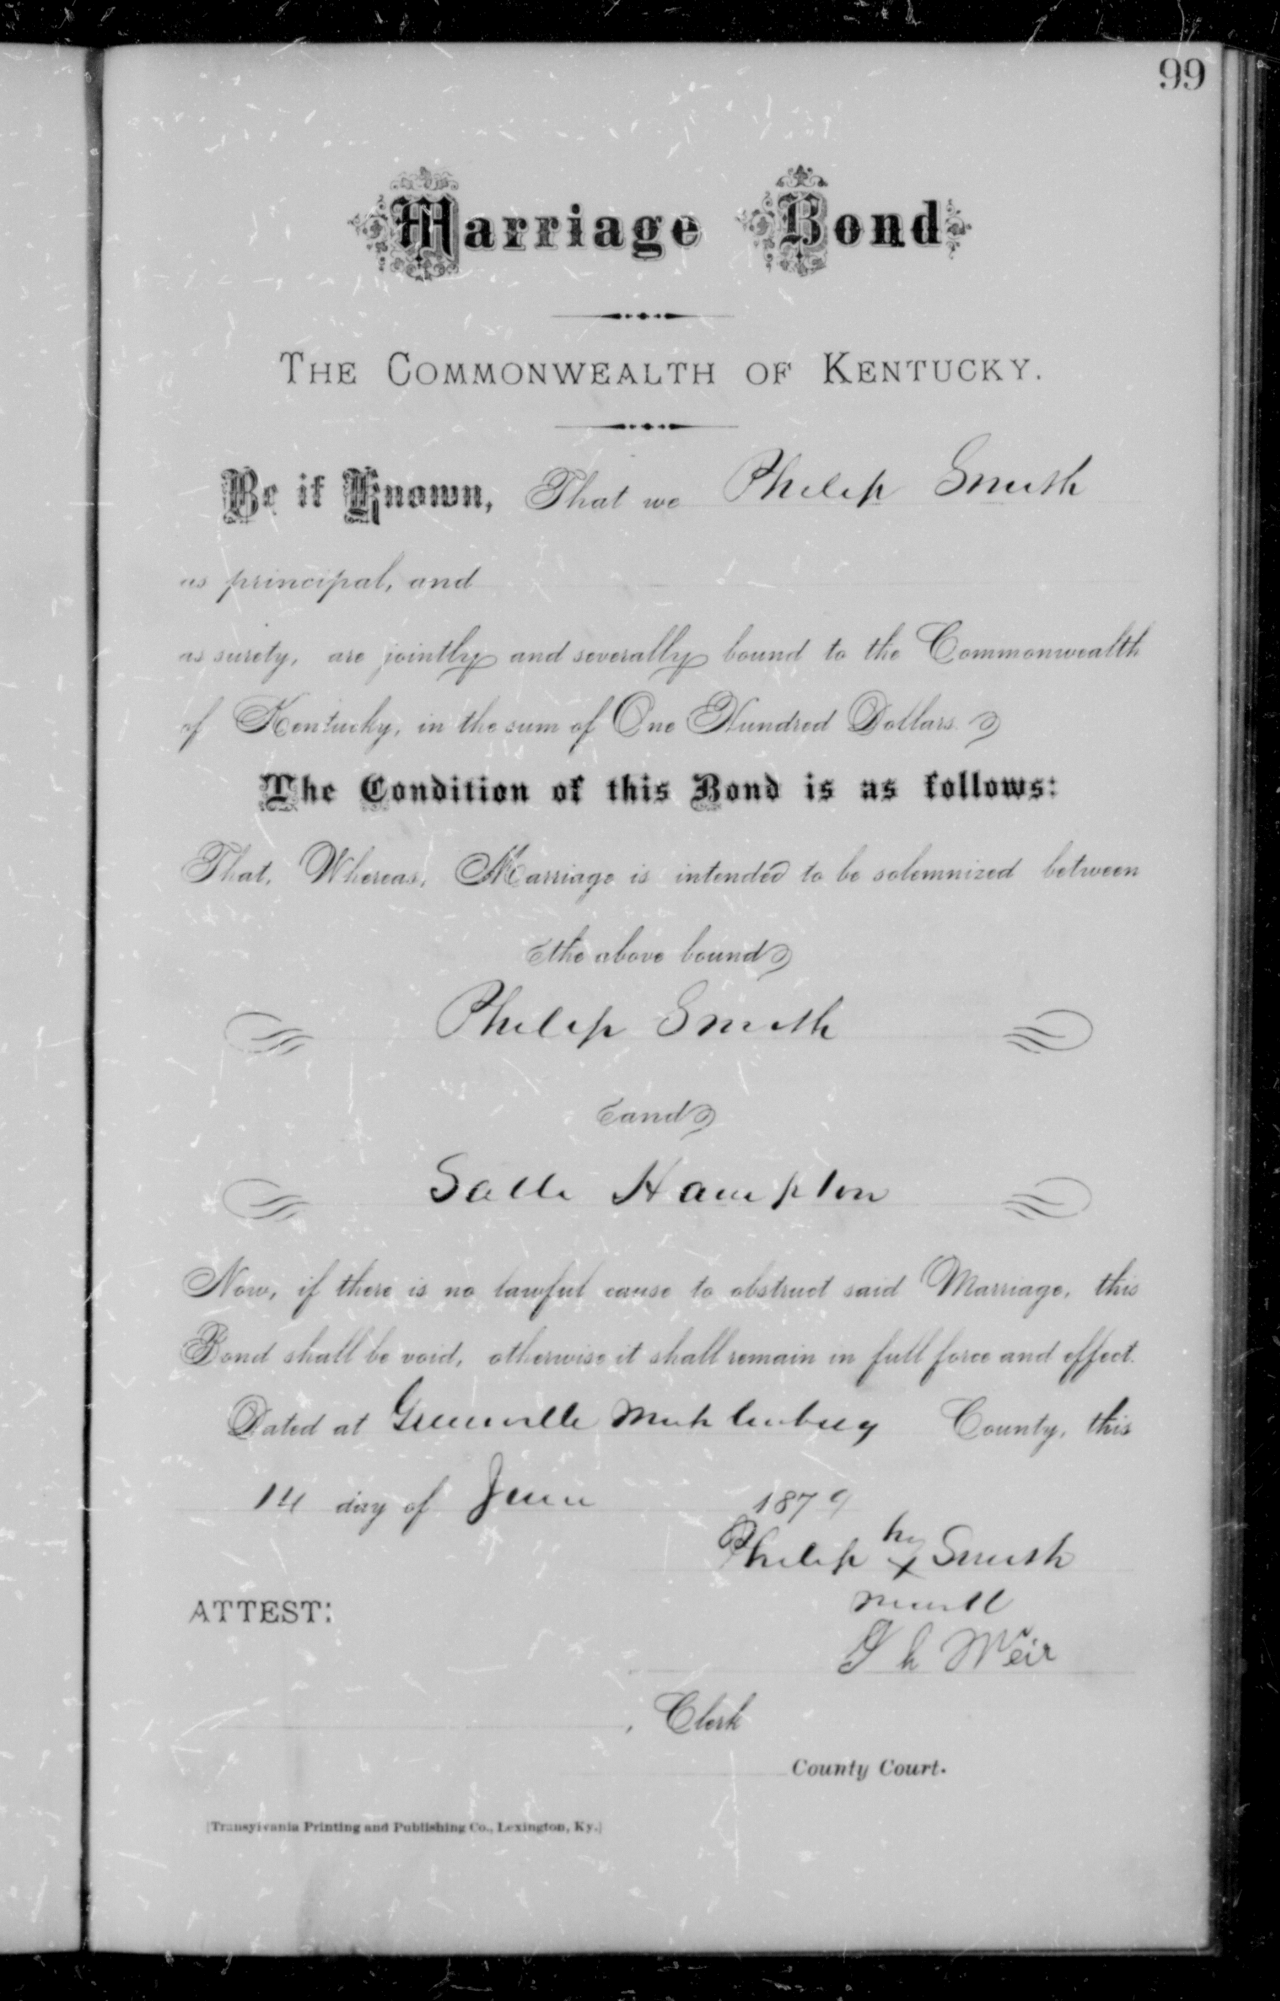 99
Marriage Bond
THE COMMONWEALTH OF KENTUCKY.
Be it Known, That we Philip Smith
as principal, and
as surety, are jointly and severally bound to the Commonwealth
of Kentucky, in the sum of One Hundred Dollars.
The Condition of this Bond is as follows:
That, Whereas, Marriage is intended to be solemnized between
the above bound
Philip Smith
and
Salle Hampton
Now, if there is no lawful cause to obstruct said Marriage, this
Bond shall be void, otherwise it shall remain in full force and effect.
Dated at Greenville Muhlenburg County, this
14 day of June 1879
Philip his x Smith
mark
ATTEST:
Weir
, Clerk
County Court.
[Transylvania Printing and Publishing Co., Lexington, Ky.]